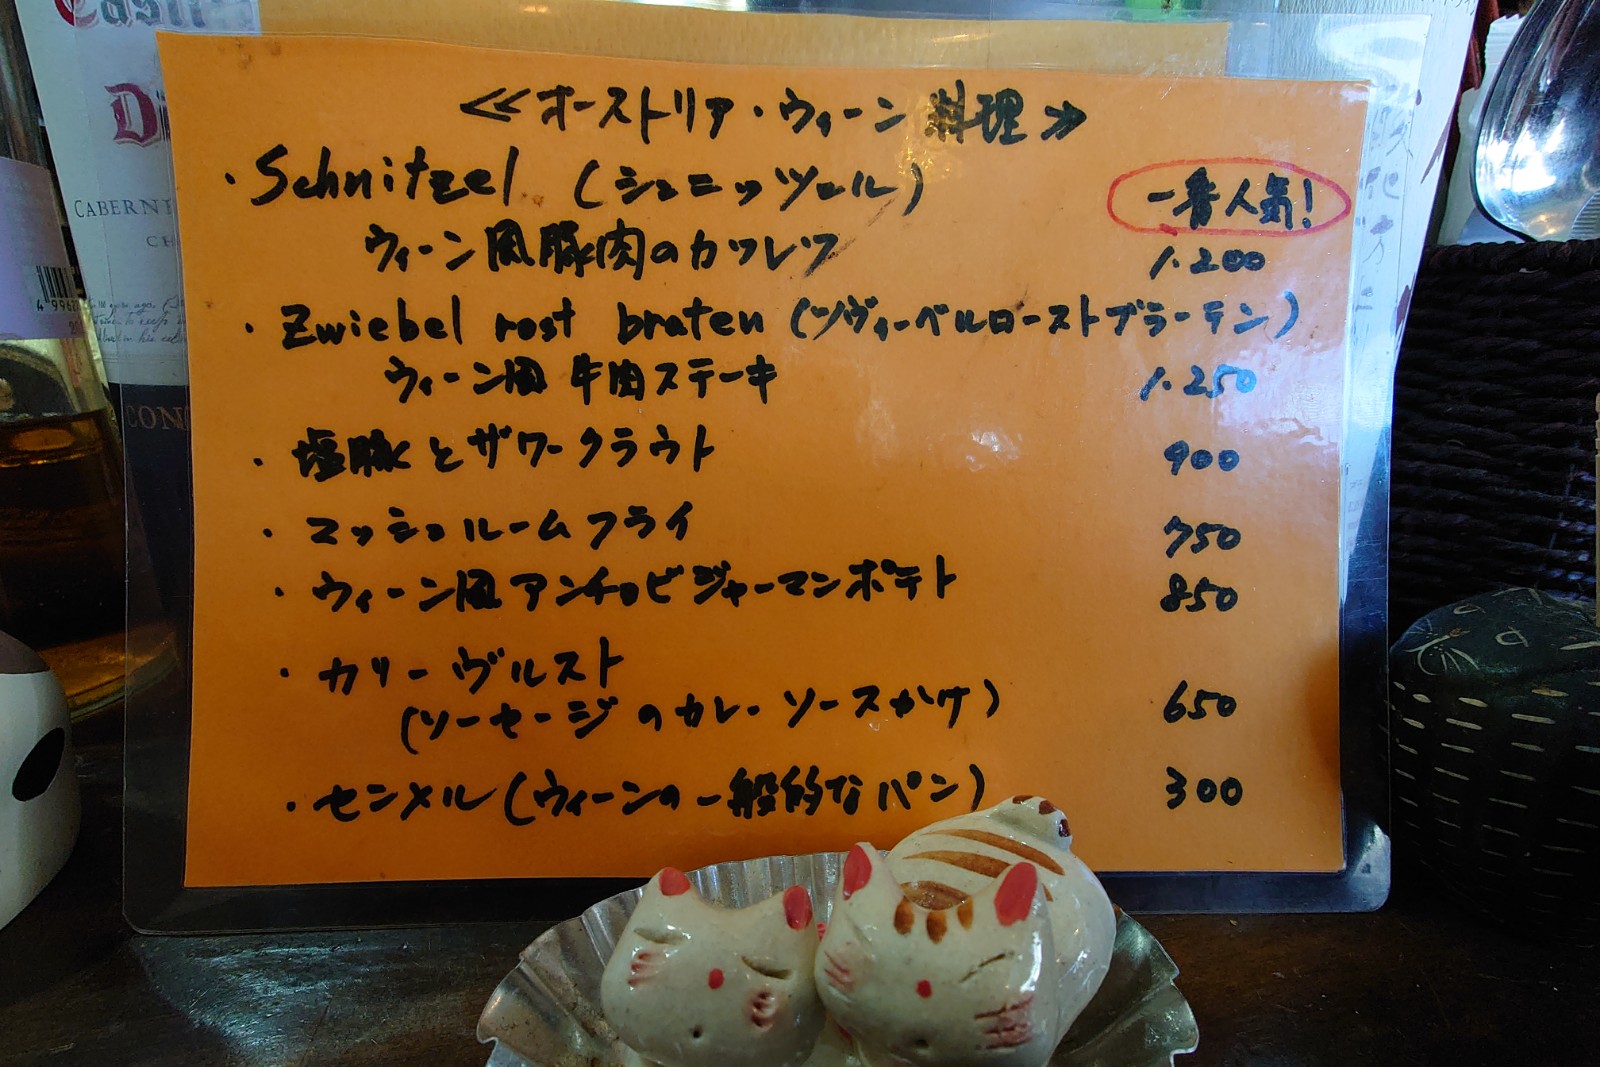 ≪オーストリア・ウィーン料理≫
・Schnitzel (シュニッツェル) 一番人気!
ウィーン風豚肉のカツレツ 1.200
・Zwiebel rost braten (ツヴィーベルローストブラーテン)
ウィーン風 牛肉ステーキ 1.250
・塩豚とザワークラウト 900
・マッシュルームフライ 750
・ウィーン風アンチョビジャーマンポテト 850
・カリーヴルスト
(ソーセージのカレーソースかけ) 650
・センメル(ウィーンの一般的なパン) 300
CABERN
CH
CON